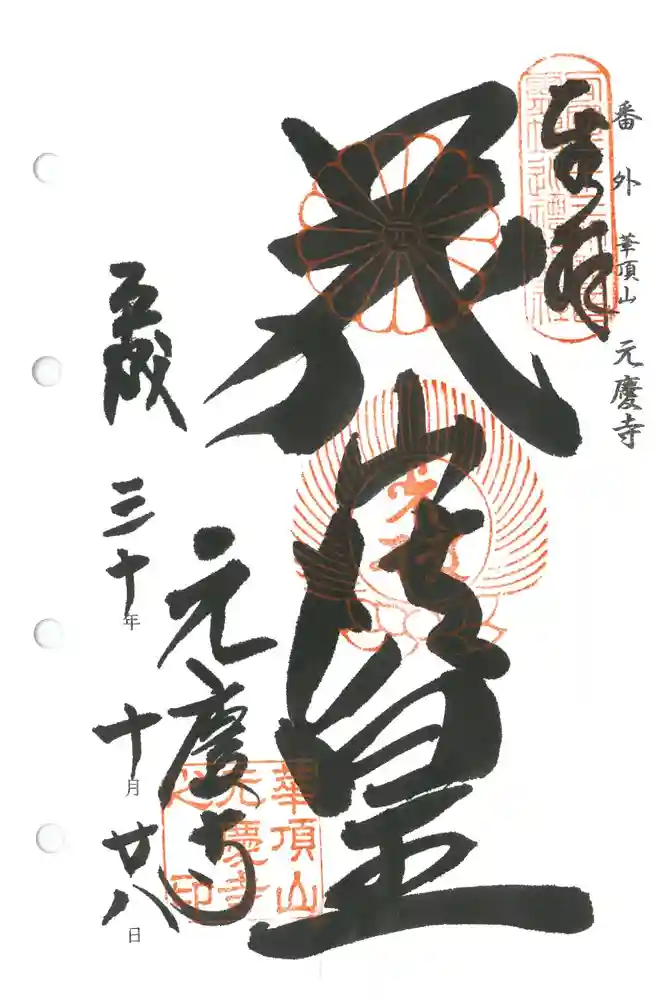 番外 華頂山 元慶寺
奉拝
花山法皇
元慶寺
華頂山
元慶寺
之印
平成三十年十月廿八日